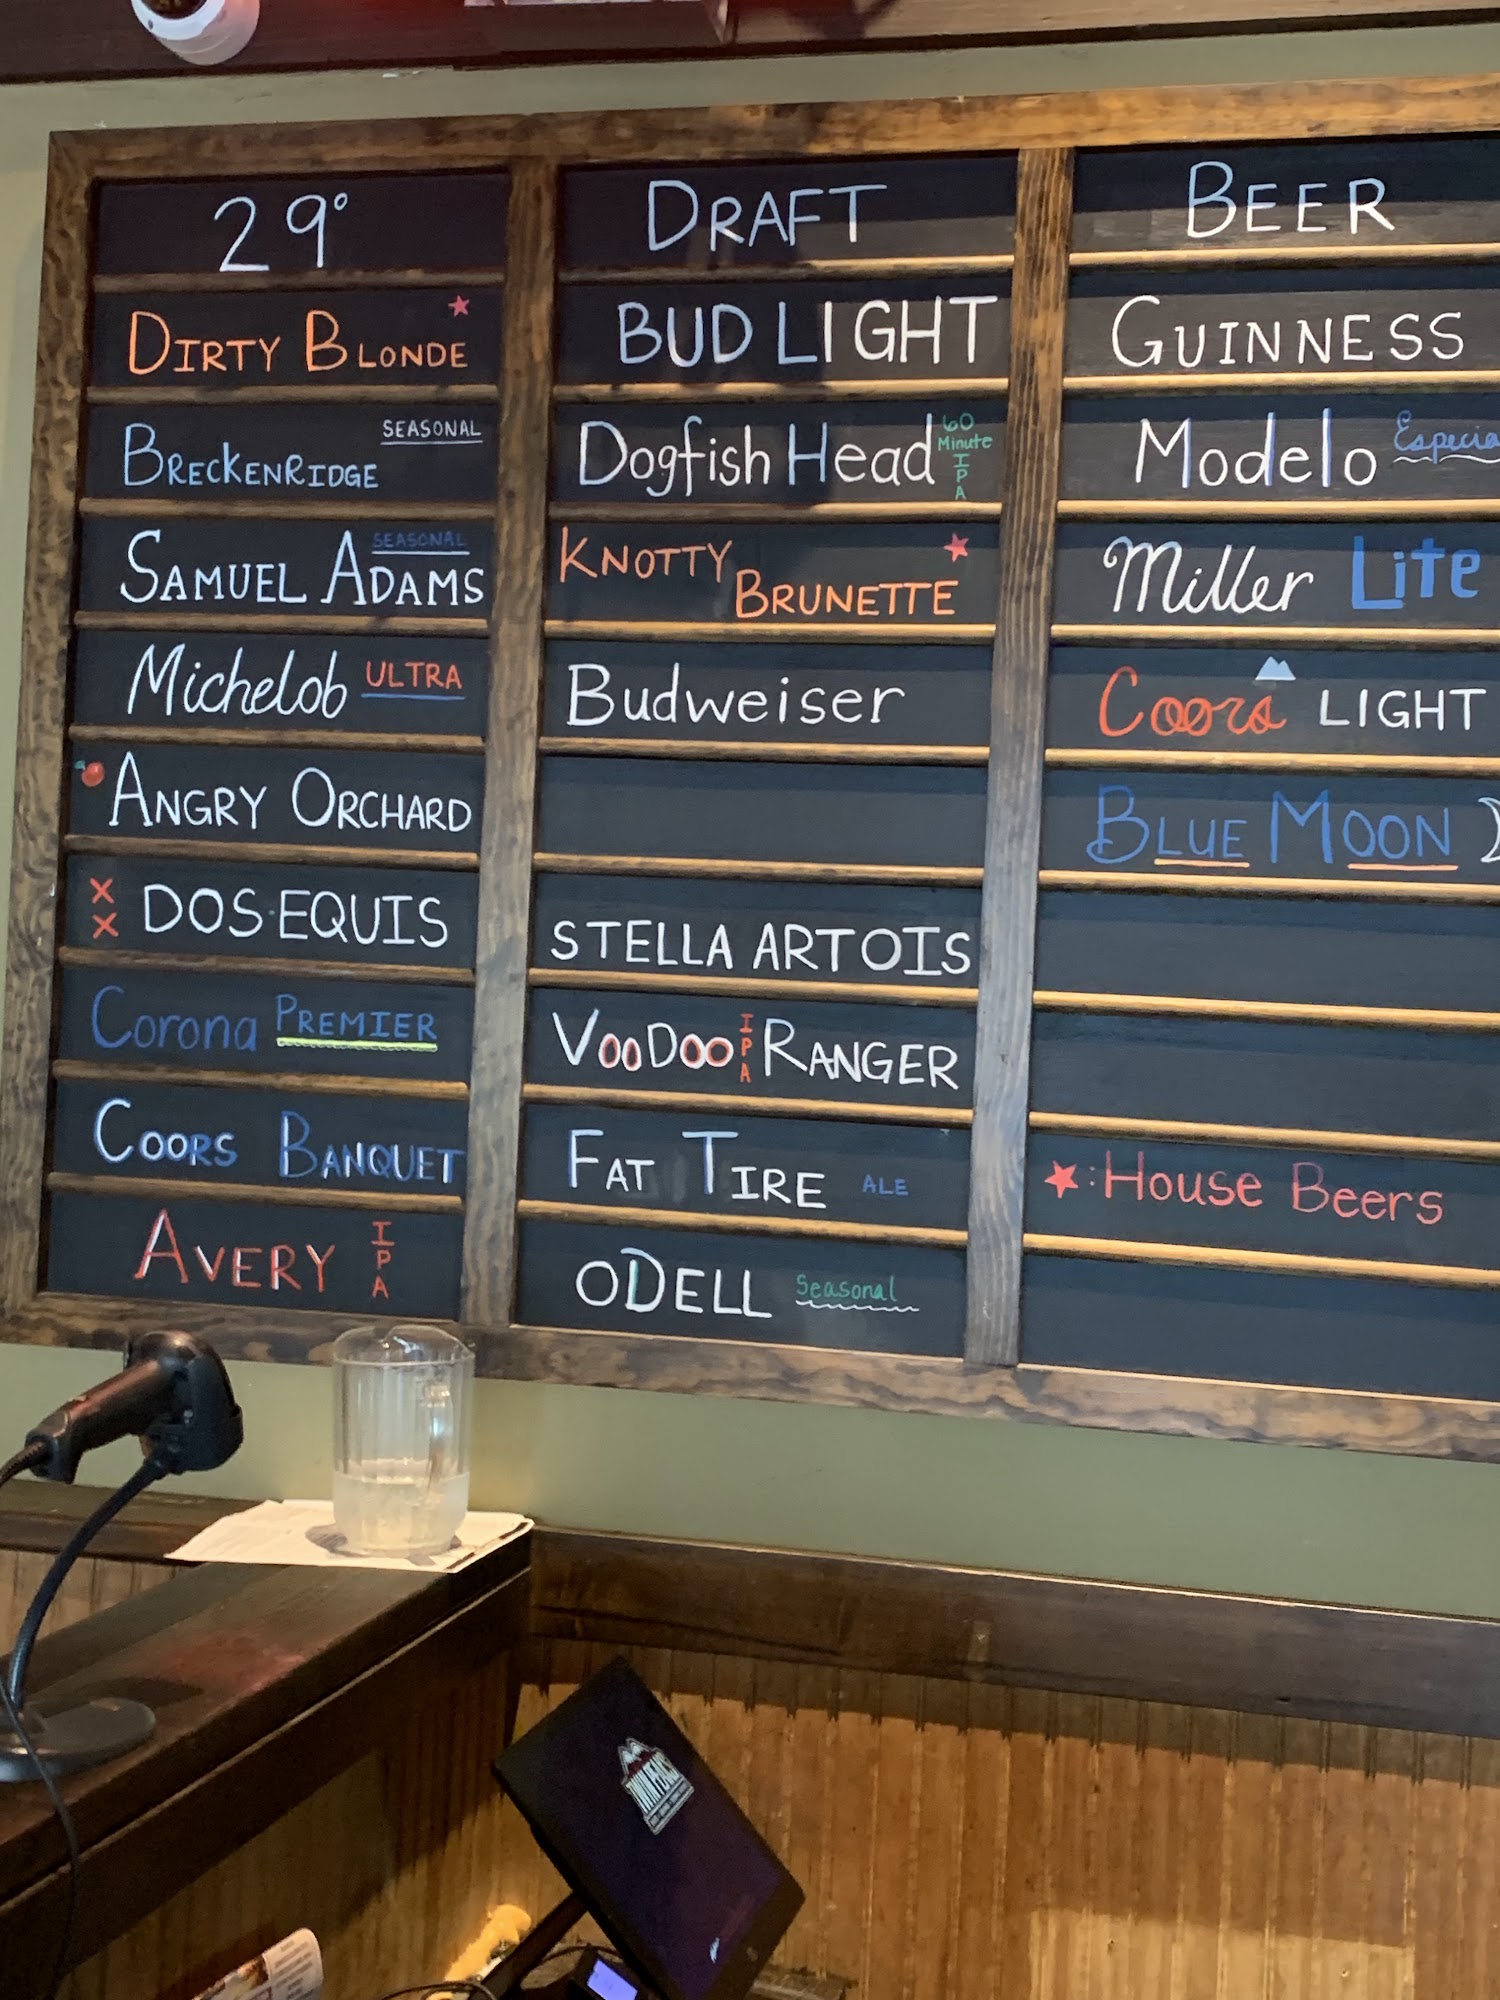 29°
DIRTY BLONDE
BRECKENRIDGE SEASONAL
SAMUEL ADAMS SEASONAL
Michelob ULTRA
ANGRY ORCHARD
XX DOS·EQUIS
Corona PREMIER
COORS BANQUET
AVERY IPA
DRAFT
BUD LIGHT
Dogfish Head 60 Minute IPA
KNOTTY BRUNETTE
Budweiser
STELLA ARTOIS
VOODOO IPA RANGER
FAT TIRE ALE
ODELL Seasonal
BEER
GUINNESS
Modelo Especia
Miller Lite
Coors LIGHT
BLUE MOON
: House Beers
TWIN PEAKS